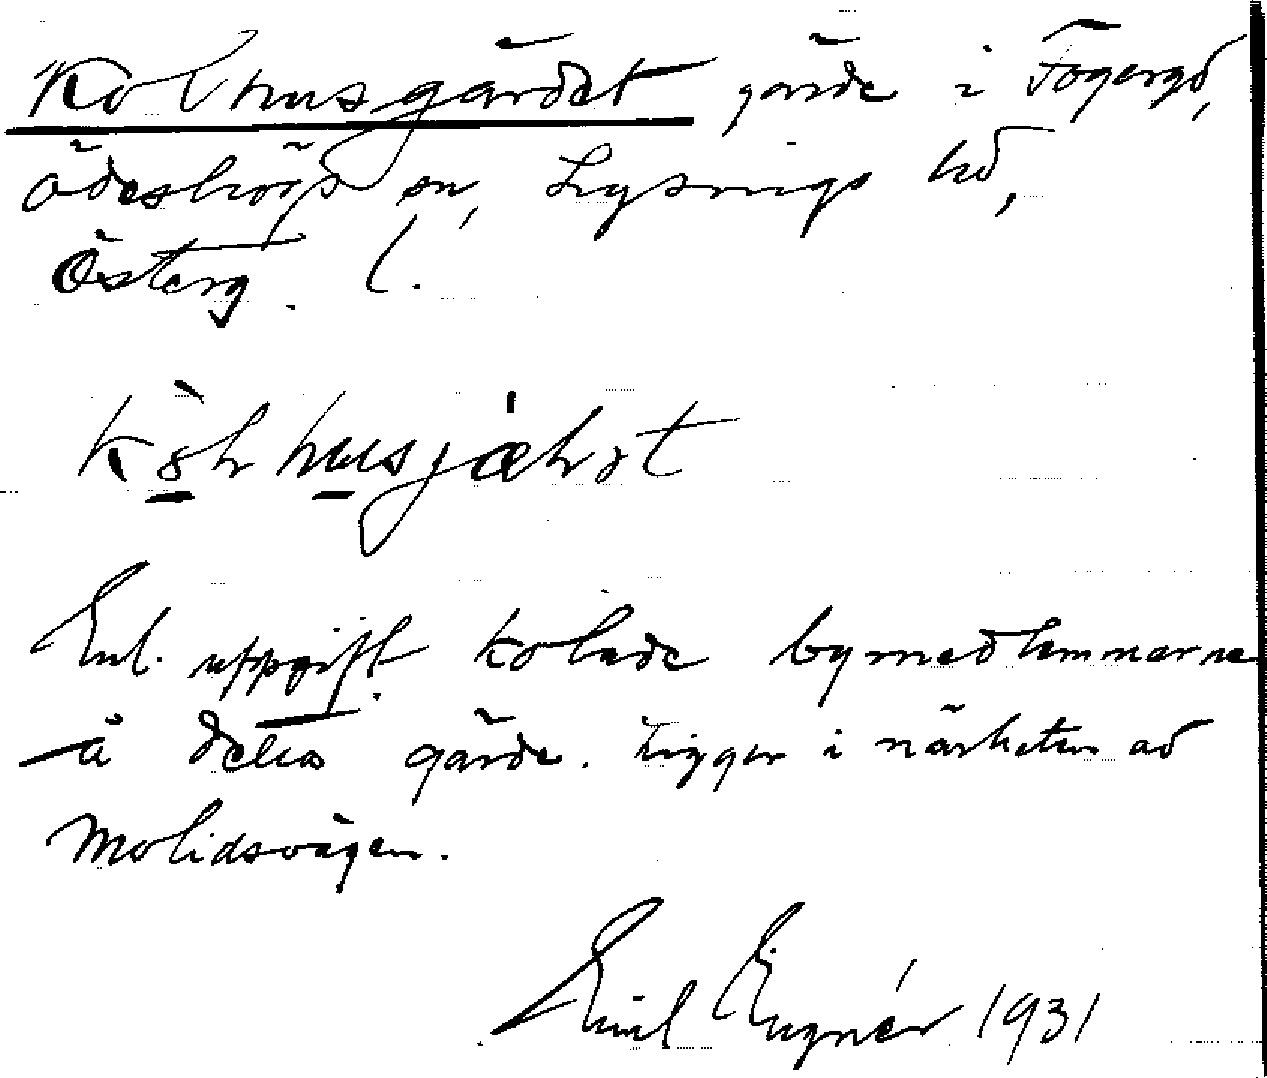 Kolhusgärdet gärde i Fogeryd,
Ödeshögs sn, Lysings hd,
Österg. l.
Enl. uppgift kolade bymedlemmarne
å detta gärde. Ligger i närheten av
Molidsvägen.
Emil Engnér 1931